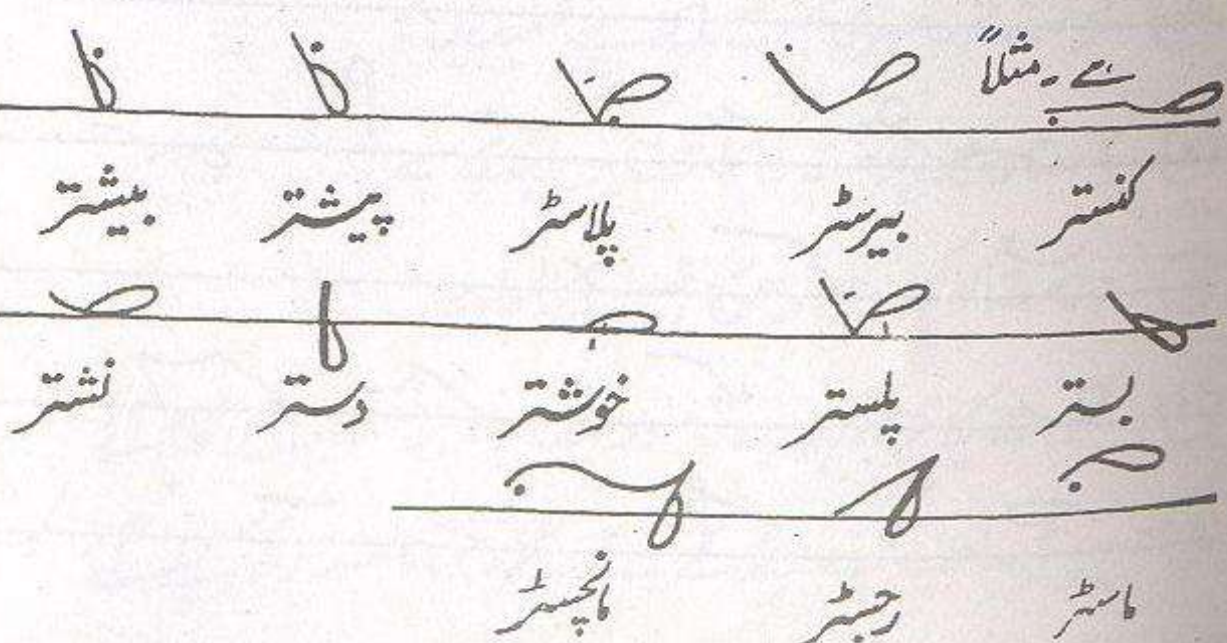 ہے ۔ مثلاً
کنستر بیرسٹر پلاسٹر پیشتر بیشتر
بستر پلستر خوشتر دستر نشتر
ماسٹر رجسٹر مانچسٹر